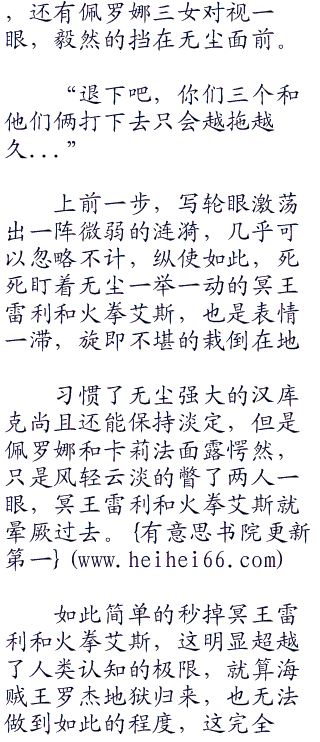 ，还有佩罗娜三女对视一
眼，毅然的挡在无尘面前。
“退下吧，你们三个和
他们俩打下去只会越拖越
久...”
上前一步，写轮眼激荡
出一阵微弱的涟漪，几乎可
以忽略不计，纵使如此，死
死盯着无尘一举一动的冥王
雷利和火拳艾斯，也是表情
一滞，旋即不堪的栽倒在地
习惯了无尘强大的汉库
克尚且还能保持淡定，但是
佩罗娜和卡莉法面露愕然，
只是风轻云淡的瞥了两人一
眼，冥王雷利和火拳艾斯就
晕厥过去。{有意思书院更新
第一}(www.heihei66.com)
如此简单的秒掉冥王雷
利和火拳艾斯，这明显超越
了人类认知的极限，就算海
贼王罗杰地狱归来，也无法
做到如此的程度，这完全